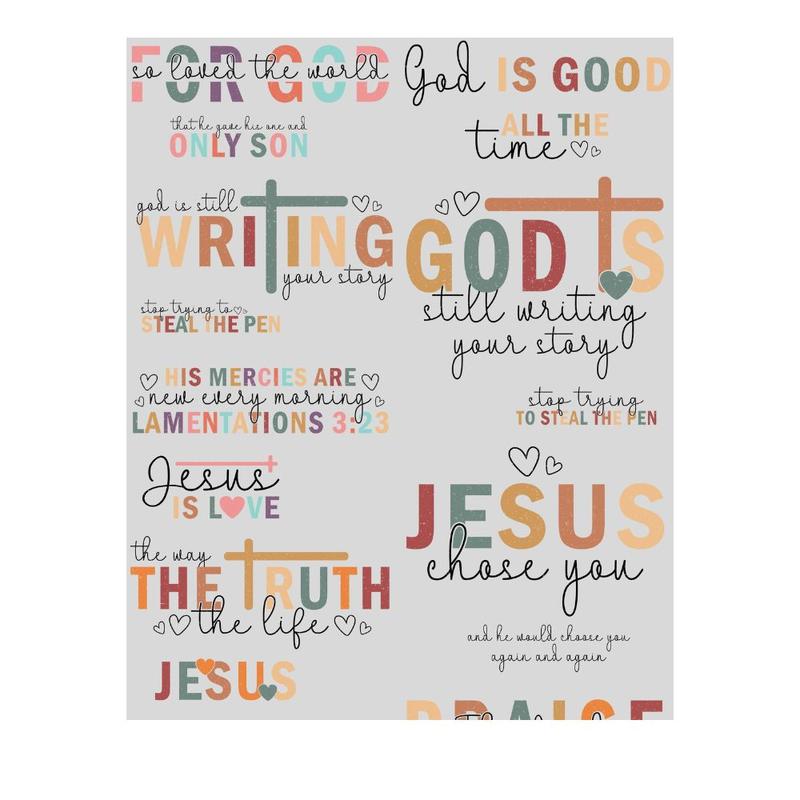 FOR GOD
so loved the world
that he gave his one and
ONLY SON
god is still
WRITING
your story
stop trying to
STEAL THE PEN
HIS MERCIES ARE
new every morning
LAMENTATIONS 3:23
Jesus
IS LOVE
the way
THE TRUTH
the life
JESUS
God IS GOOD
ALL THE
time
GOD IS
still writing
your story
stop trying
TO STEAL THE PEN
JESUS
chose you
and he would choose you
again and again
PRAISE